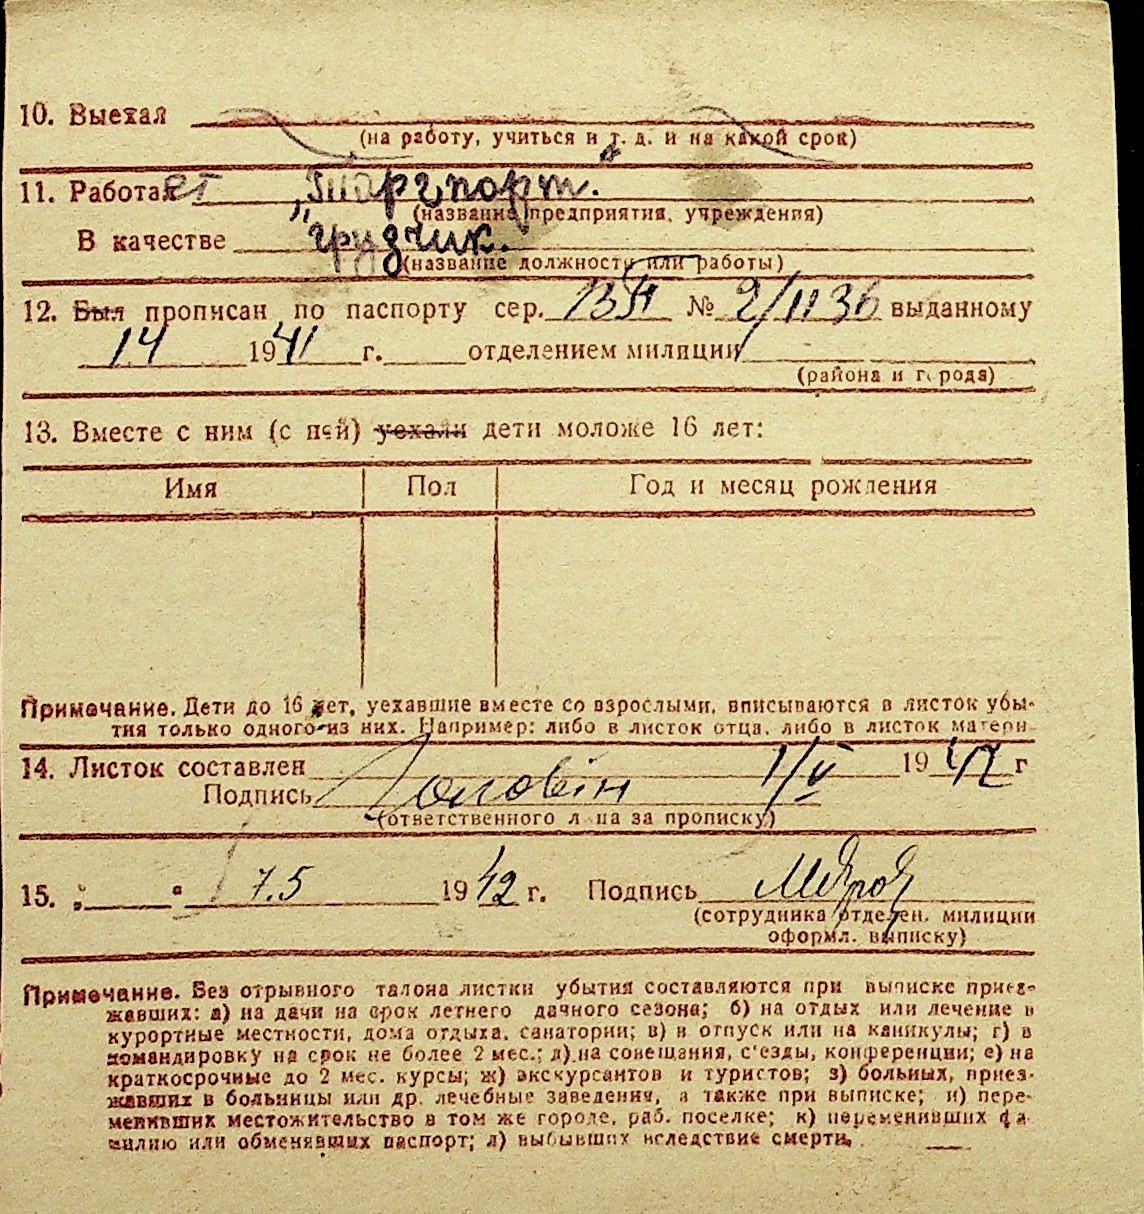 10. Выехал
(на работу, учиться и т. д. и на какой срок)
11. Работает „Таргпорт.
(название предприятия, учреждения)
В качестве грузчик.
(название должности или работы)
12. Был прописан по паспорту сер. № выданному
14 1941 г. отделением милиции
(района и города)
13. Вместе с ним (с ней) уехали дети моложе 16 лет:
Имя Пол Год и месяц рождения
Примечание. Дети до 16 лет, уехавшие вместе со взрослыми, вписываются в листок убы-
тия только одного из них. Например: либо в листок отца, либо в листок матери
14. Листок составлен 1/V 1942 г
Подпись
(ответственного лица за прописку)
15. „ " 7.5 1942 г. Подпись
(сотрудника отделен. милиции
оформл. выписку)
Примечание. Без отрывного талона листки убытия составляются при выписке приез-
жавших: а) на дачи на срок летнего дачного сезона; б) на отдых или лечение в
курортные местности, дома отдыха, санатории; в) в отпуск или на каникулы; г) в
командировку на срок не более 2 мес.; д) на совещания, с'езды, конференции; е) на
краткосрочные до 2 мес. курсы; ж) экскурсантов и туристов; з) больных, приез-
жавших в больницы или др. лечебные заведения, а также при выписке; и) пере-
менивших местожительство в том же городе, раб. поселке; к) переменивших фа-
милию или обменявших паспорт; л) выбывших вследствие смерти.